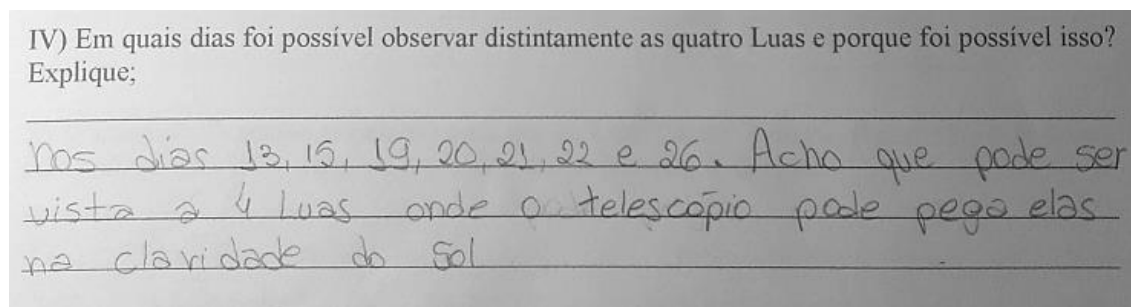 IV) Em quais dias foi possível observar distintamente as quatro Luas e porque foi possível isso?
Explique;
nos dias 13, 15, 19, 20, 21, 22 e 26. Acho que pode ser
vista a 4 Luas onde o telescópio pode pega elas
na claridade do Sol